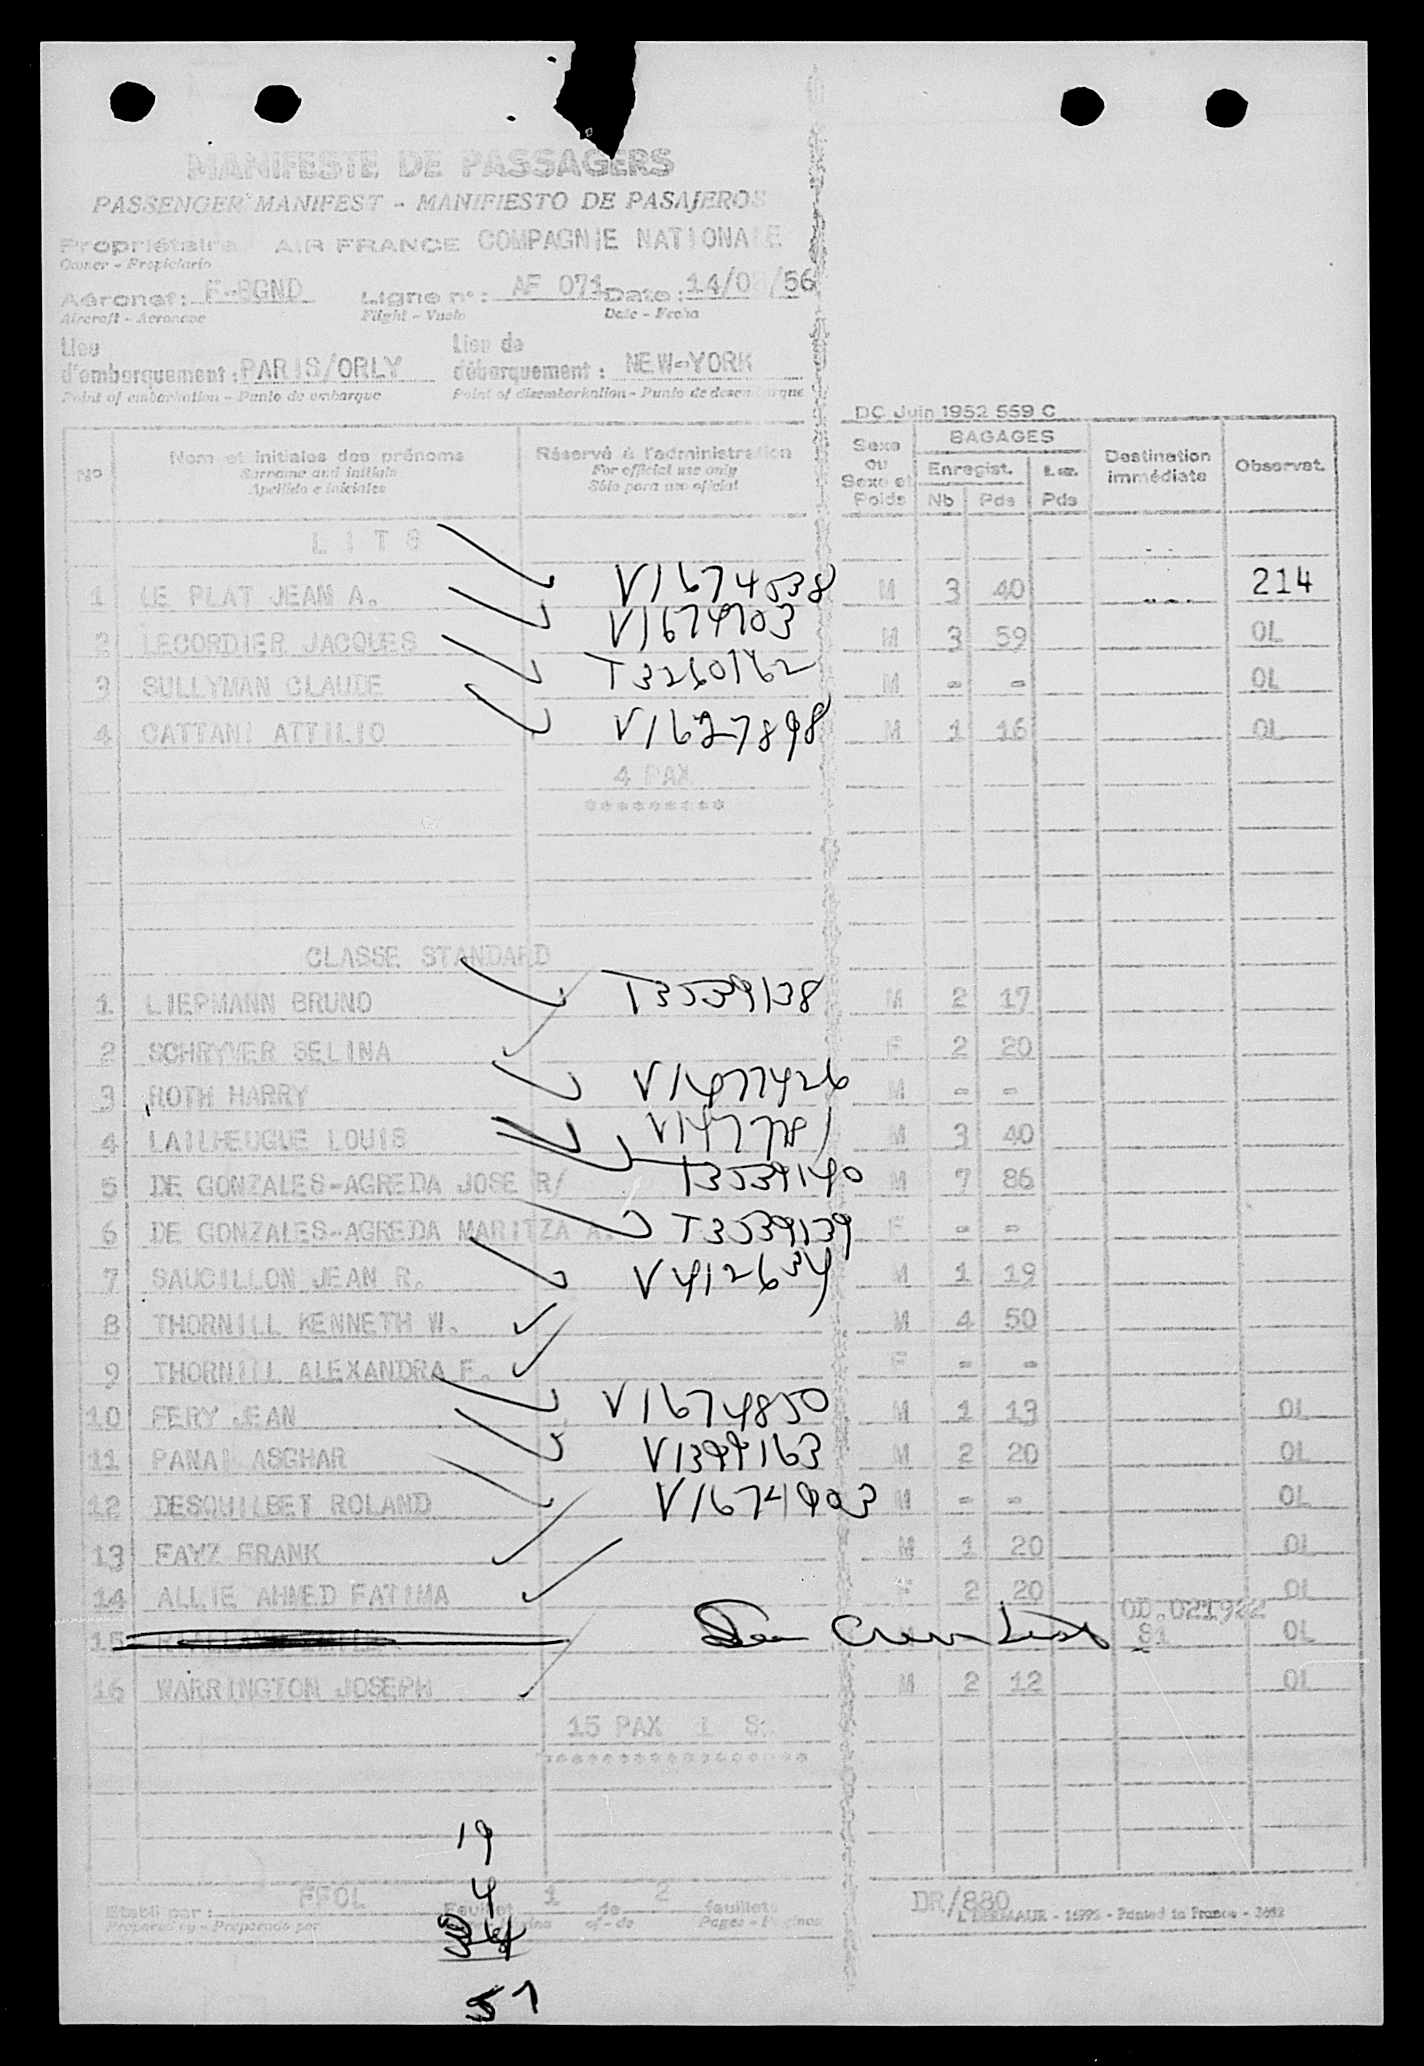 MANIFESTE DE PASSAGERS
PASSENGER MANIFEST - MANIFIESTO DE PASAJEROS
Propriétaire AIR FRANCE COMPAGNIE NATIONALE
Owner - Propietario
Aéronef: F-BGND Ligne n°: AF 071 Date: 14/0 /56
Aircraft - Aeronave Flight - Vuelo Date - Fecha
Lieu d'embarquement: PARIS/ORLY Lieu de débarquement: NEW-YORK
Point of embarkation - Punto de embarque Point of disembarkation - Punto de desembarque
DC Juin 1952 559 C
No Nom et initiales des prénoms Réservé à l'administration Sexe ou Sexe et Poids BAGAGES Enregist. Nb Pds Pds Destination immédiate Observat.
Surname and initials For official use only
Apellido e iniciales Sólo para uso oficial
LITS
1 LE PLAT JEAN A. V1674538 M 3 40 214
2 LECORDIER JACQUES V1674703 M 3 59 OL
3 SULLYMAN CLAUDE T3260162 M - - OL
4 CATTANI ATTILIO V1627898 M 1 16 OL
4 PAX
*********
CLASSE STANDARD
1 LIEPMANN BRUNO T3539138 M 2 17
2 SCHRYVER SELINA F 2 20
3 ROTH HARRY V1477426 M - -
4 LAILHEUGUE LOUIS M 3 40
5 DE GONZALES-AGREDA JOSE R/ T3539140 M 7 86
6 DE GONZALES-AGREDA MARITZA A. T3539139 F - -
7 SAUCILLON JEAN R. V412634 M 1 19
8 THORNILL KENNETH W. M 4 50
9 THORNILL ALEXANDRA F. F - -
10 FERY JEAN V1674850 M 1 13 OL
11 PANAI ASGHAR V1399163 M 2 20 OL
12 DESQUILBET ROLAND V1674903 M - - OL
13 FAYZ FRANK M 1 20 OL
14 ALLIE AHMED FATIMA F 2 20 OL
15 See Crew List OD.021922 S1 OL
16 WARRINGTON JOSEPH M 2 12 OL
15 PAX 1 S1
19
4
Etabli par: FFOL Feuillet 1 de 2 feuillets DR/880
Prepared by - Preparado por of - de Pages - Paginas - Printed in France -
34
57